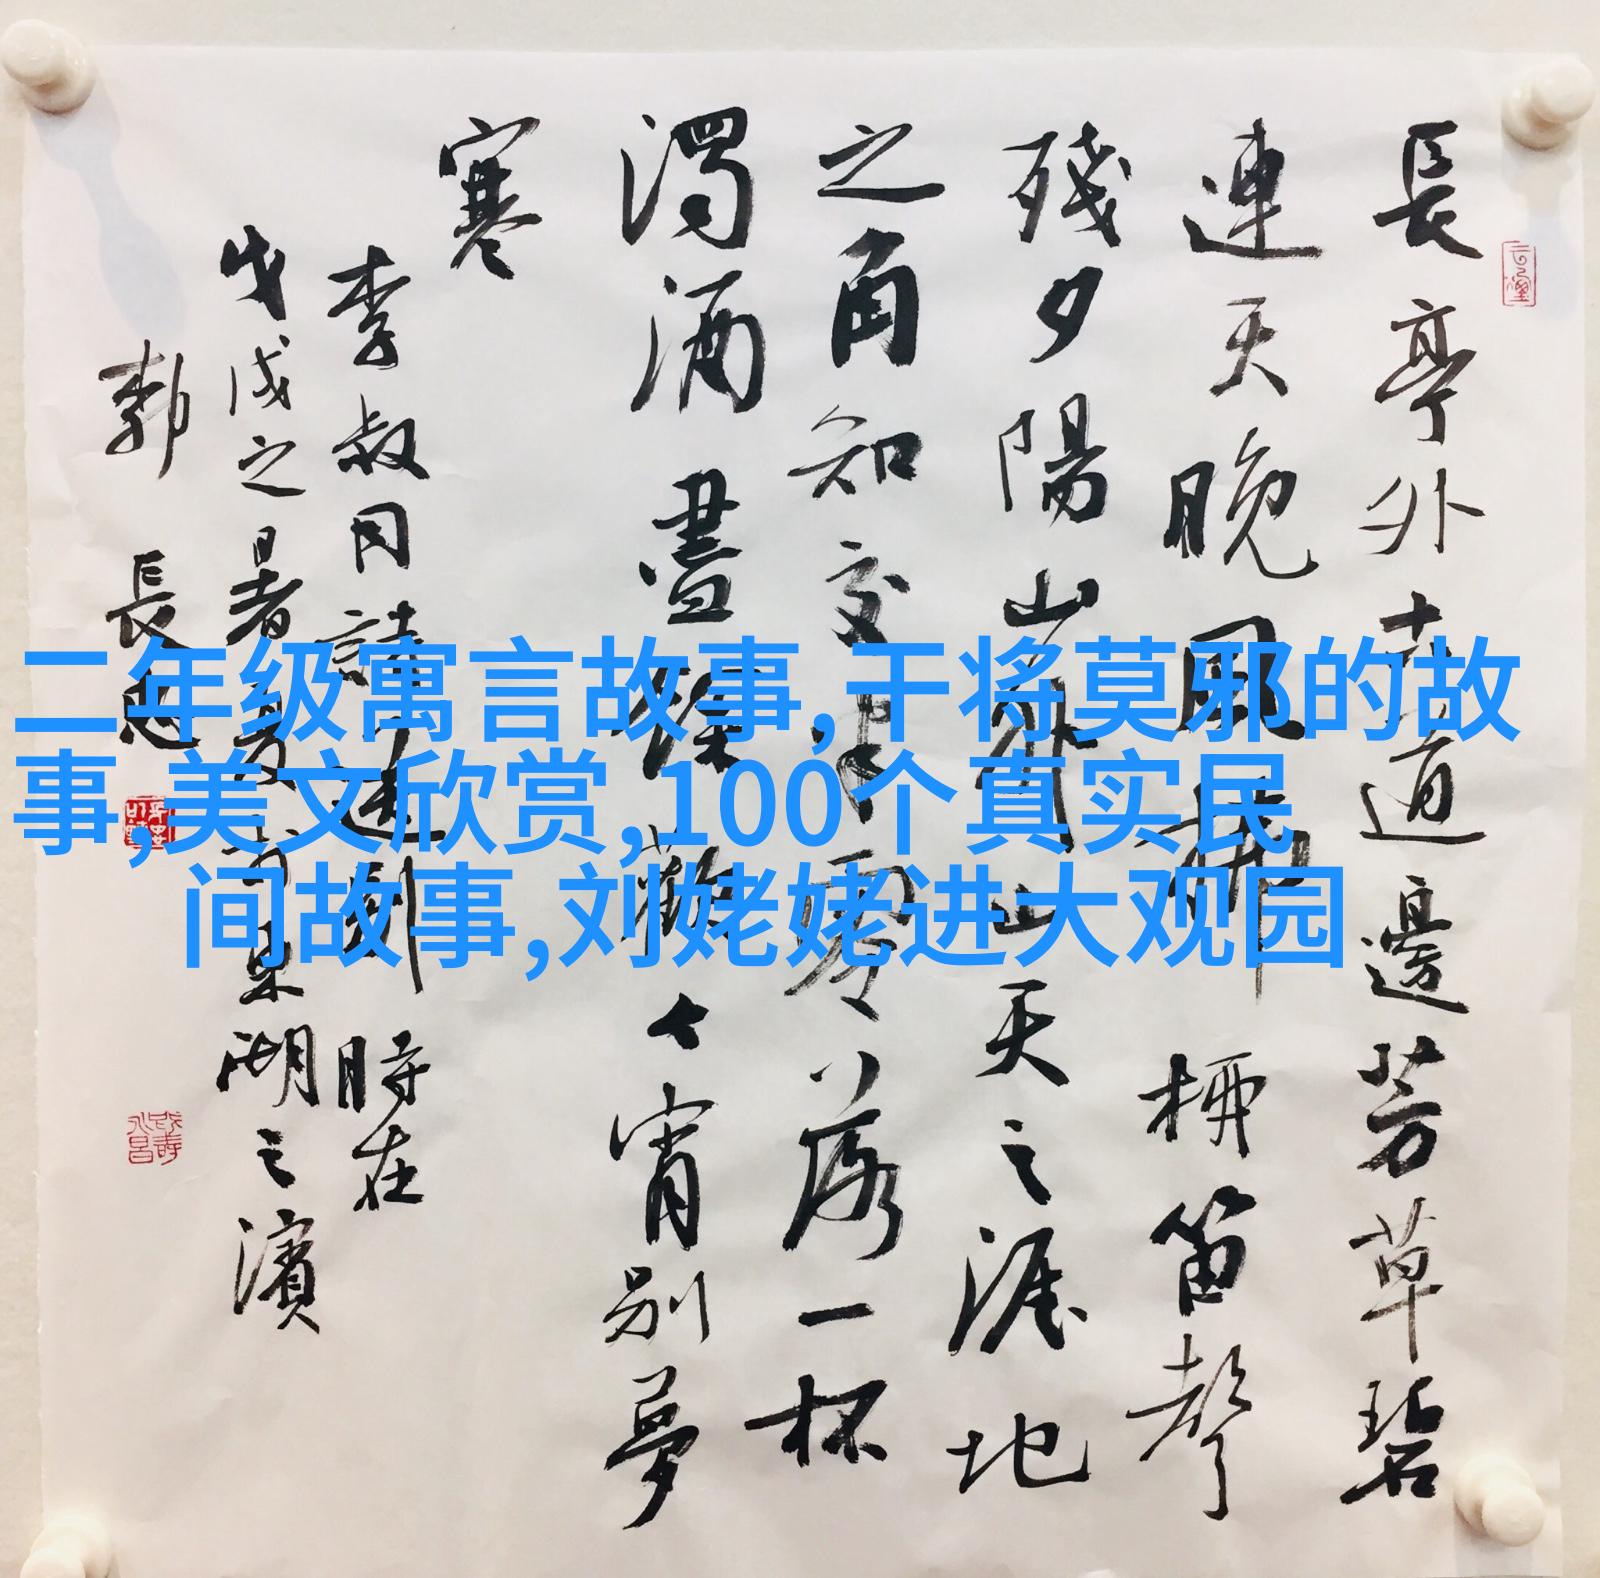 長亭外古道邊芳草碧
連天晚風拂柳笛聲
殘夕陽山外山天之涯地
之角知交半零落一杯
濁酒盡餘歡今宵別夢
寒
李叔同詩送別時在
戊戌之暑夏東湖之濱
長
二年级寓言故事,干将莫邪的故
事,美文欣赏,100个真实民
间故事,刘姥姥进大观园